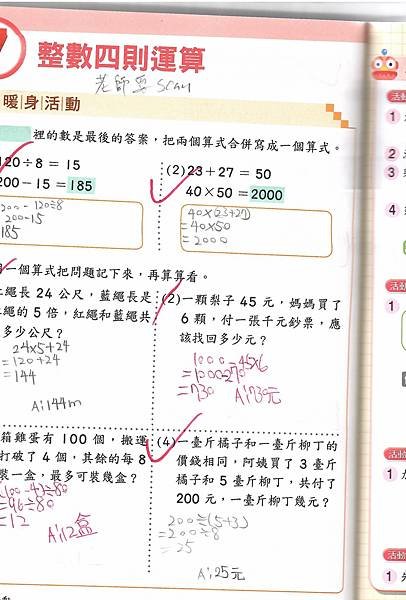 7 整數四則運算
老師要scan
暖身活動
裡的數是最後的答案,把兩個算式合併寫成一個算式。
120÷8 = 15
200-15 = 185
200 - 120÷8
200-15
185
(2) 23+27 = 50
40×50 = 2000
40×(23+27)
=40×50
=2000
用一個算式把問題記下來,再算算看。
紅繩長 24 公尺,藍繩長是
紅繩的 5 倍,紅繩和藍繩共
多少公尺?
24×5+24
=120+24
=144
A:144m
(2) 一顆梨子 45 元,媽媽買了
6 顆,付一張千元鈔票,應
該找回多少元?
1000-45×6
=1000-270
=730 A:730元
箱雞蛋有 100 個,搬運
打破了 4 個,其餘的每 8
裝一盒,最多可裝幾盒?
(100-4)÷80
=96÷80
=12
A:12盒
(4) 一臺斤橘子和一臺斤柳丁的
價錢相同,阿姨買了 3 臺斤
橘子和 5 臺斤柳丁,共付了
200 元,一臺斤柳丁幾元?
200÷(5+3)
=200÷8
=25
A:25元
活動
1
2
3
4
活動
1
活動
1
活動
1